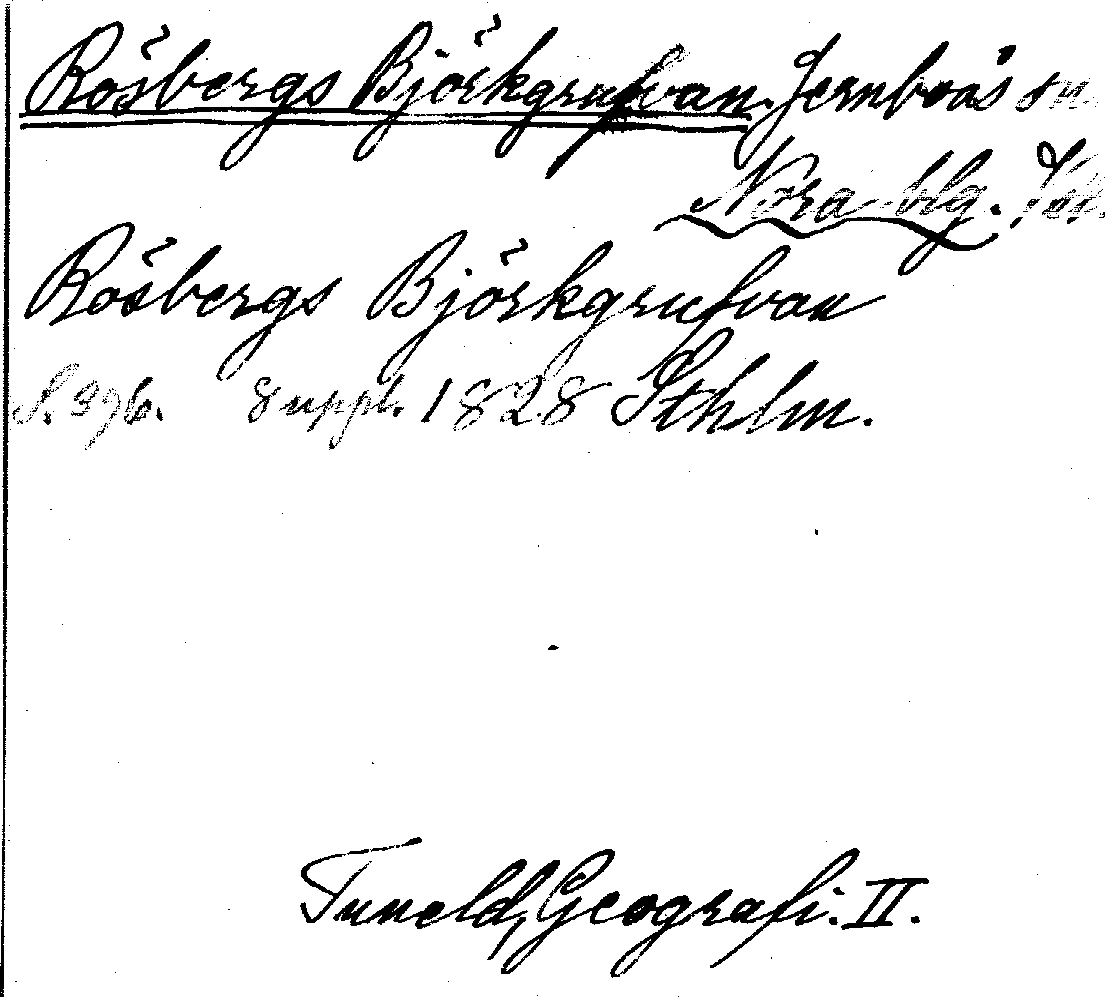 Rösbergs Björkgrufvan. Jernboås sn.
Nora blg. Vstl.
Rösbergs Björkgrufvan
S. 396. 8 uppl. 1828 Sthlm.
Tuneld, Geografi. II.